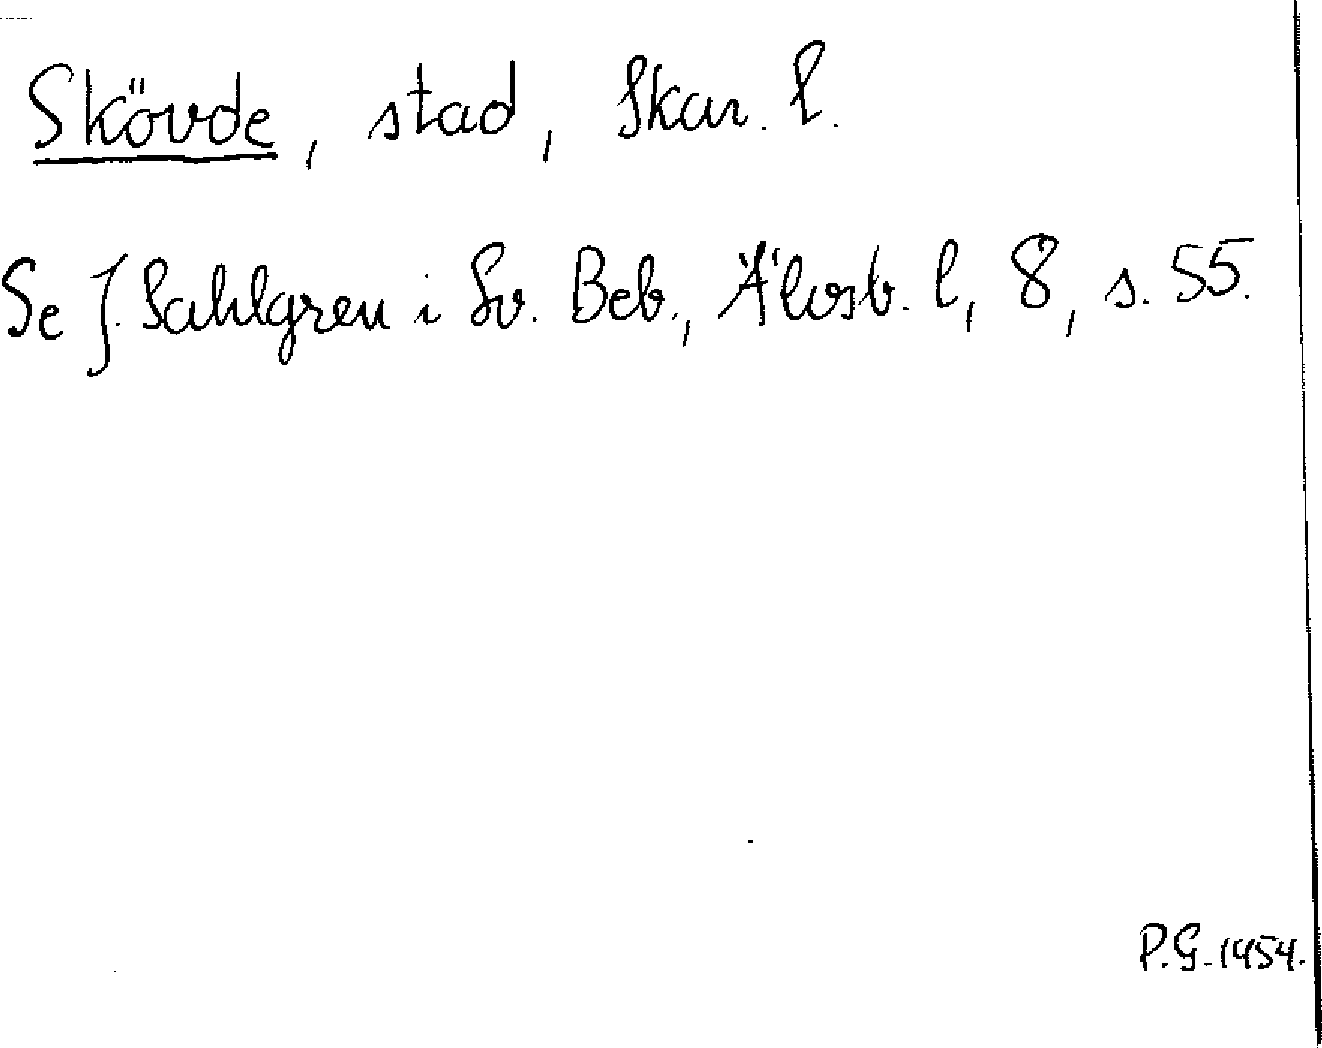 Skövde, stad, Skar. l.
Se J. Sahlgren i Sv. Beb., Älvsb. l, 8, s. 55.
P.G. 1954.